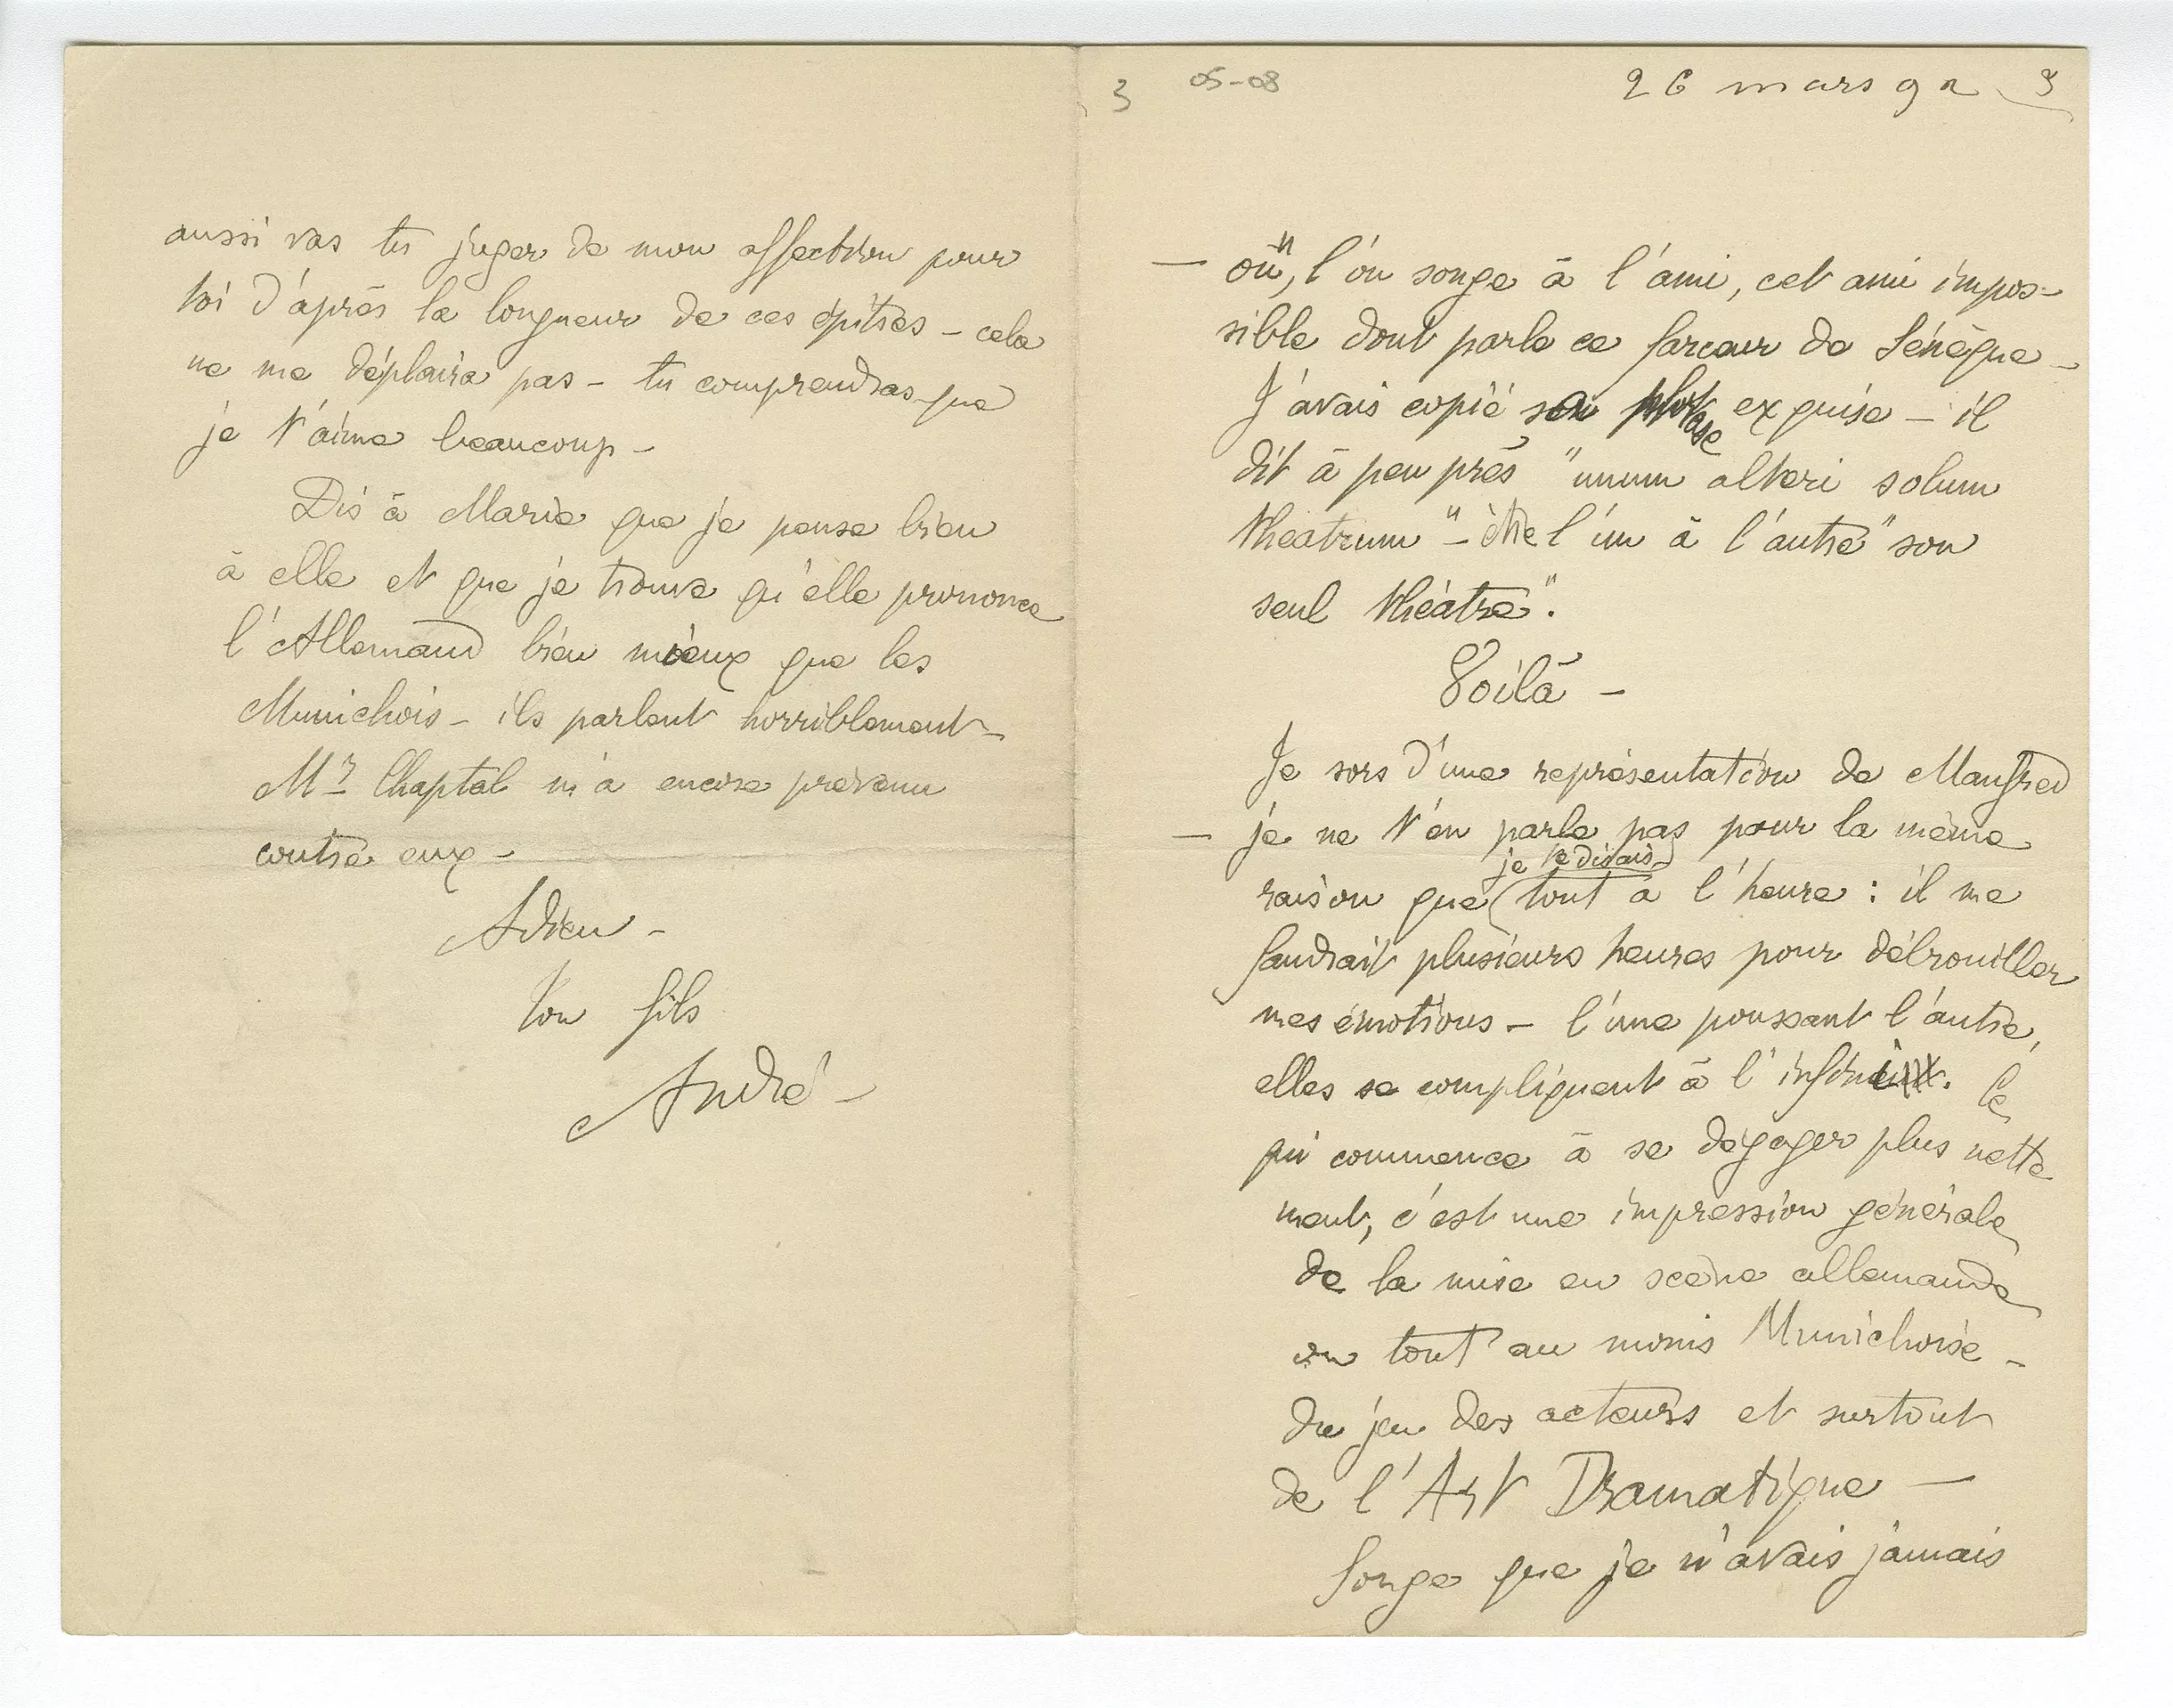 aussi vas tu juger de mon affection pour
toi d'après la longueur de ces épitres – cela
ne me déplaira pas – tu comprendras que
je t'aime beaucoup –
Dis à Marie que je pense bien
à elle et que je trouve qu'elle prononce
l'Allemand bien mieux que les
Munichois – ils parlent horriblement –
Mr Chaptal m'a encore prévenu
contre eux –
Adieu –
ton fils
André –
3 05-08 26 mars 92 3
– où, l'on songe à l'ami, cet ami impos-
sible dont parle ce farceur de Sénèque –
J'avais copié sa phrase exquise – il
dit à peu près "unum alteri solum
theatrum" – être l'un à l'autre "son
seul théâtre".
Voilà –
Je sors d'une représentation de Manfred
– je ne t'en parle pas pour la même
raison que je te disais tout à l'heure : il me
faudrait plusieurs heures pour débrouiller
mes émotions – l'une poussant l'autre,
elles se compliquent à l'infini. Ce
qui commence à se dégager plus nette
ment, c'est une impression générale
de la mise en scène allemande
ou tout au moins Munichoise –
du jeu des acteurs et surtout
de l'Art Dramatique –
Songe que je n'avais jamais